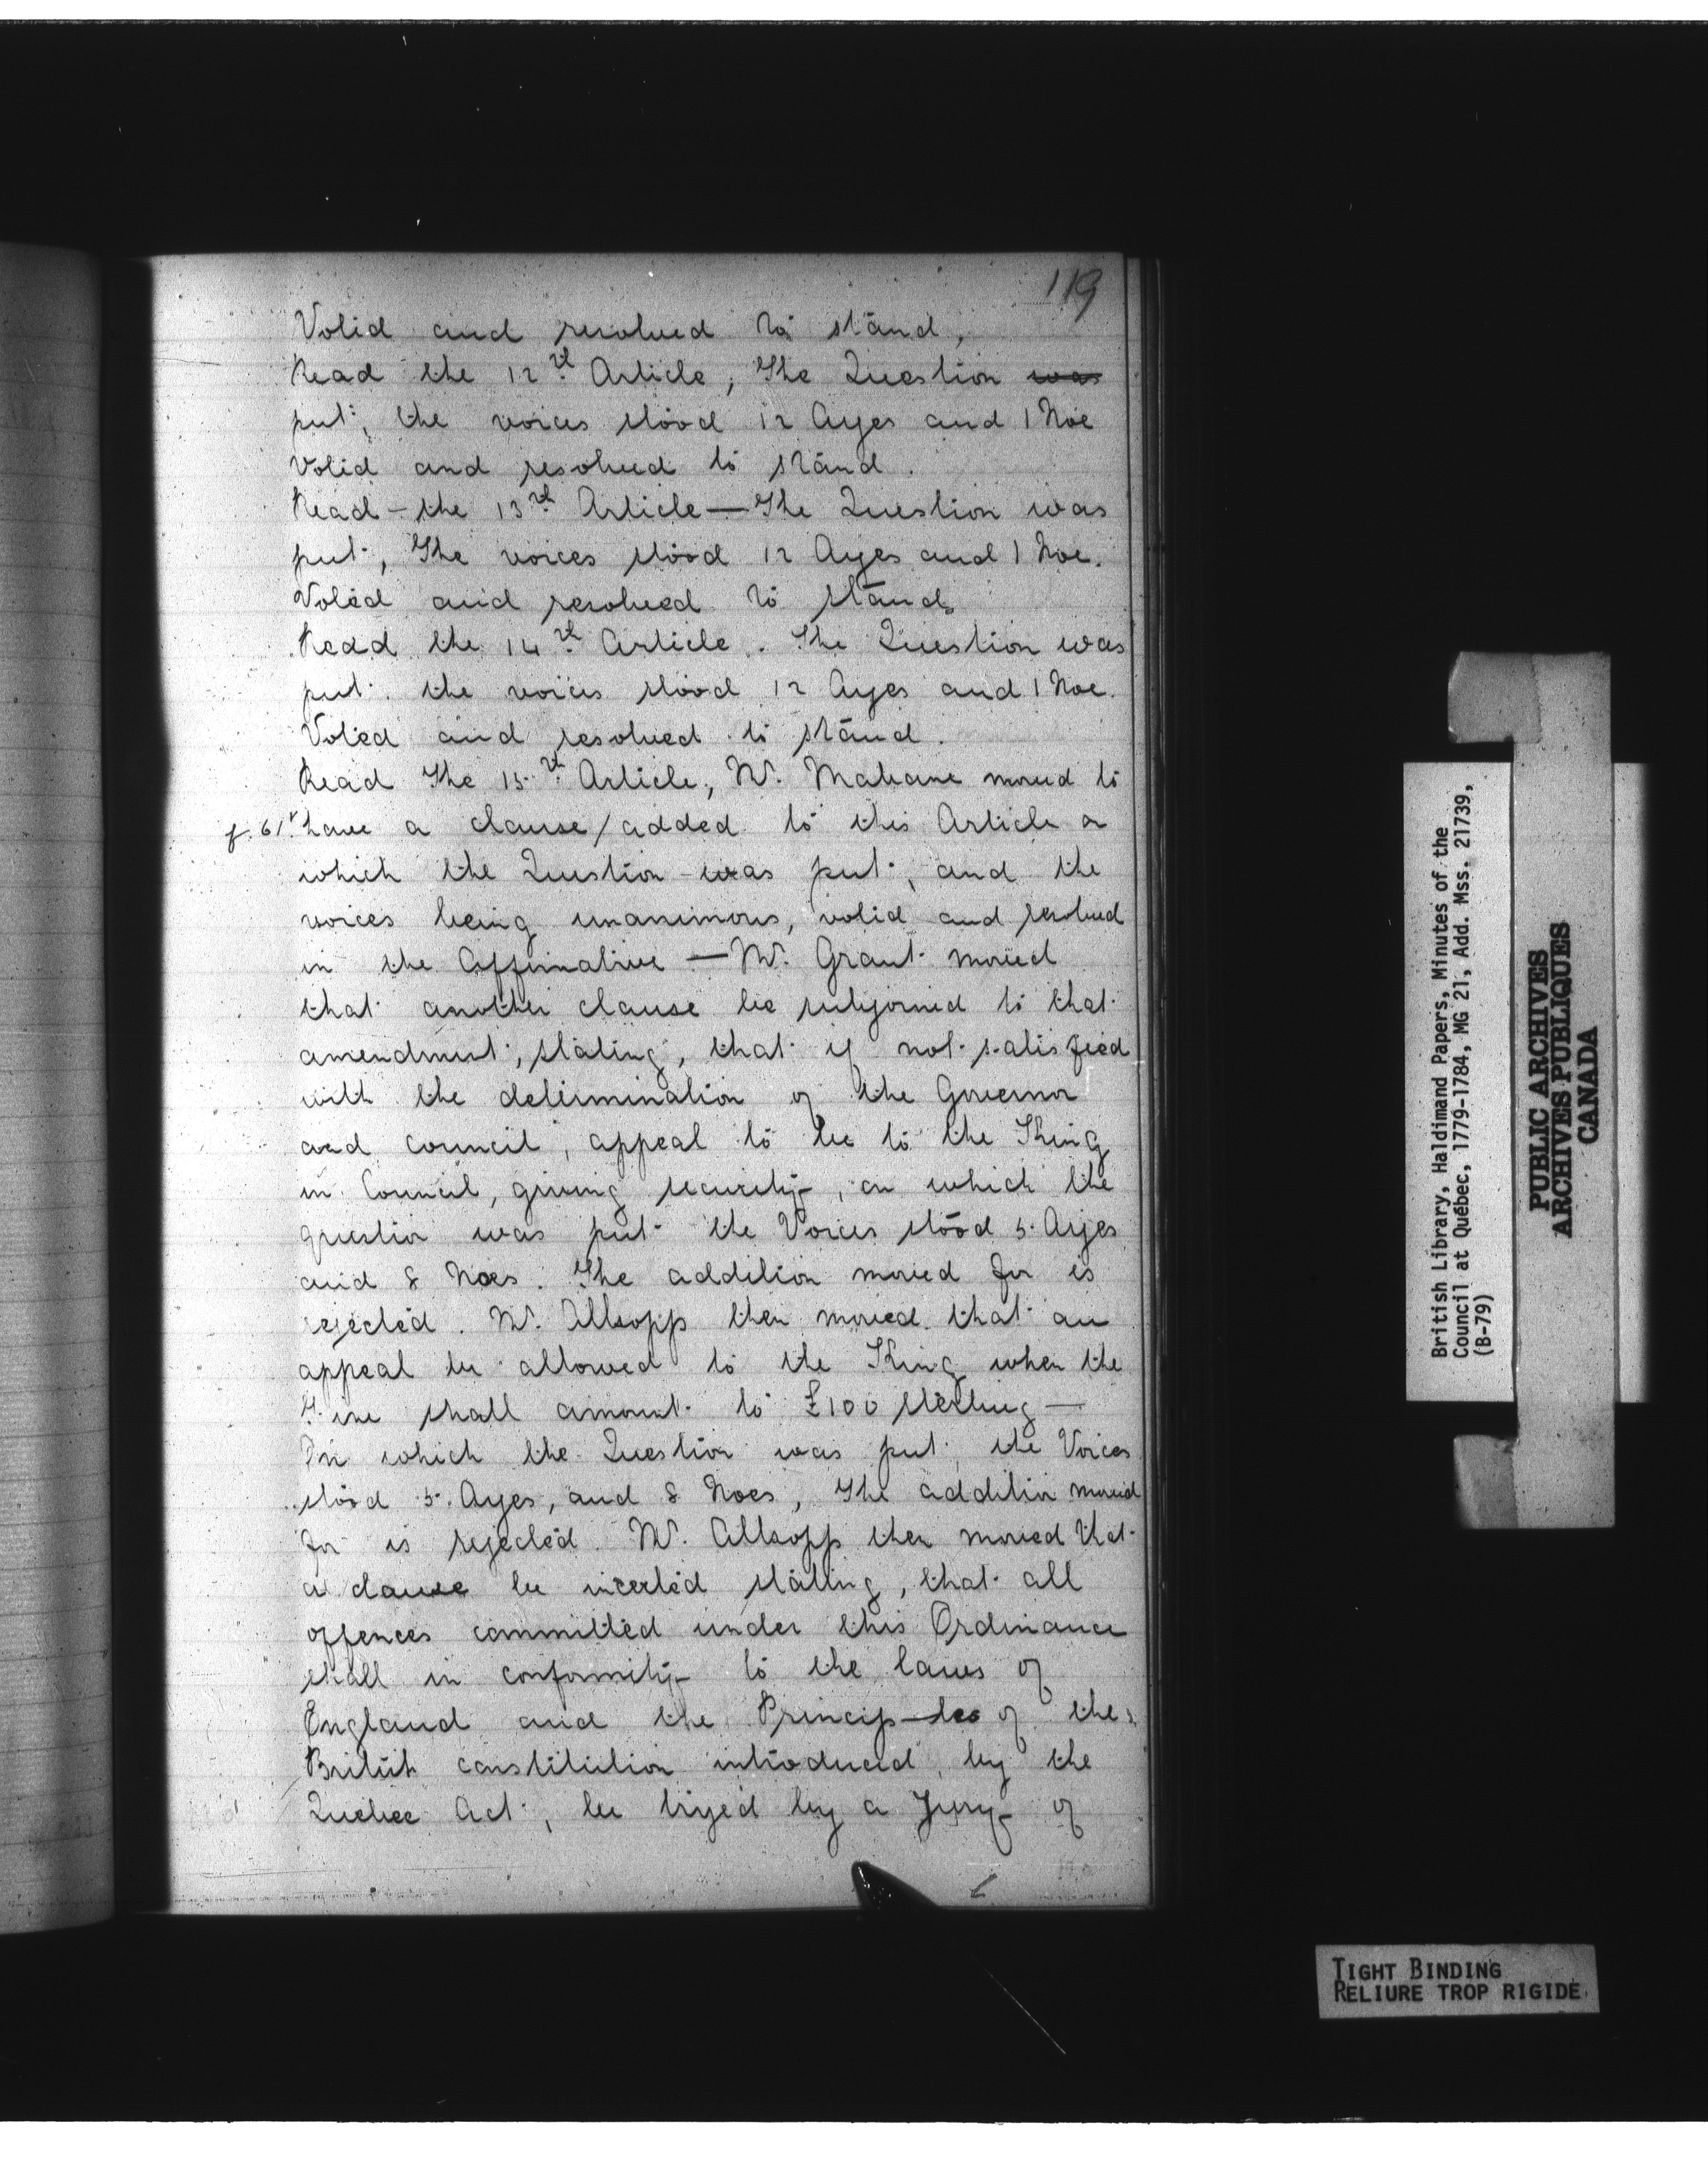 119
Voted and resolved to stand,
Read the 12th Article, The Question was
put, the voices stood 12 Ayes and 1 Noe
Voted and resolved to stand.
Read - the 13th Article — The Question was
put, The voices stood 12 Ayes and 1 Noe.
Voted and resolved to stand
Read the 14th Article. The Question was
put. the voices stood 12 Ayes and 1 Noe.
Voted and resolved to stand.
Read The 15th Article, Mr. Mabane moved to
f. 61v. have a clause / added to this Article on
which the Question was put, and the
voices being unanimous, voted and resolved
in the Affirmative — Mr. Grant moved
that another clause be subjoined to that
amendment, stating, that if not satisfied
with the determination of the Governor
and council, appeal to be to the King
in Council, giving security, on which the
question was put the Voices stood 5 Ayes
and 8 Noes. The addition moved for is
rejected. Mr. Allsopp then moved that an
appeal be allowed to the King when the
Fine shall amount to £100 sterling —
On which the Question was put, the Voices
stood 5 Ayes, and 8 Noes, The addition moved
for is rejected. Mr. Allsopp then moved that
a clause be incerted stating, that all
offences committed under this Ordinance
shall in conformity to the laws of
England and the Principles of the
British constitution introduced, by the
Quebec Act, be tryed by a Jury of
British Library, Haldimand Papers, Minutes of the
Council at Québec, 1779-1784, MG 21, Add. Mss. 21739,
(B-79)
PUBLIC ARCHIVES
ARCHIVES PUBLIQUES
CANADA
TIGHT BINDING
RELIURE TROP RIGIDE